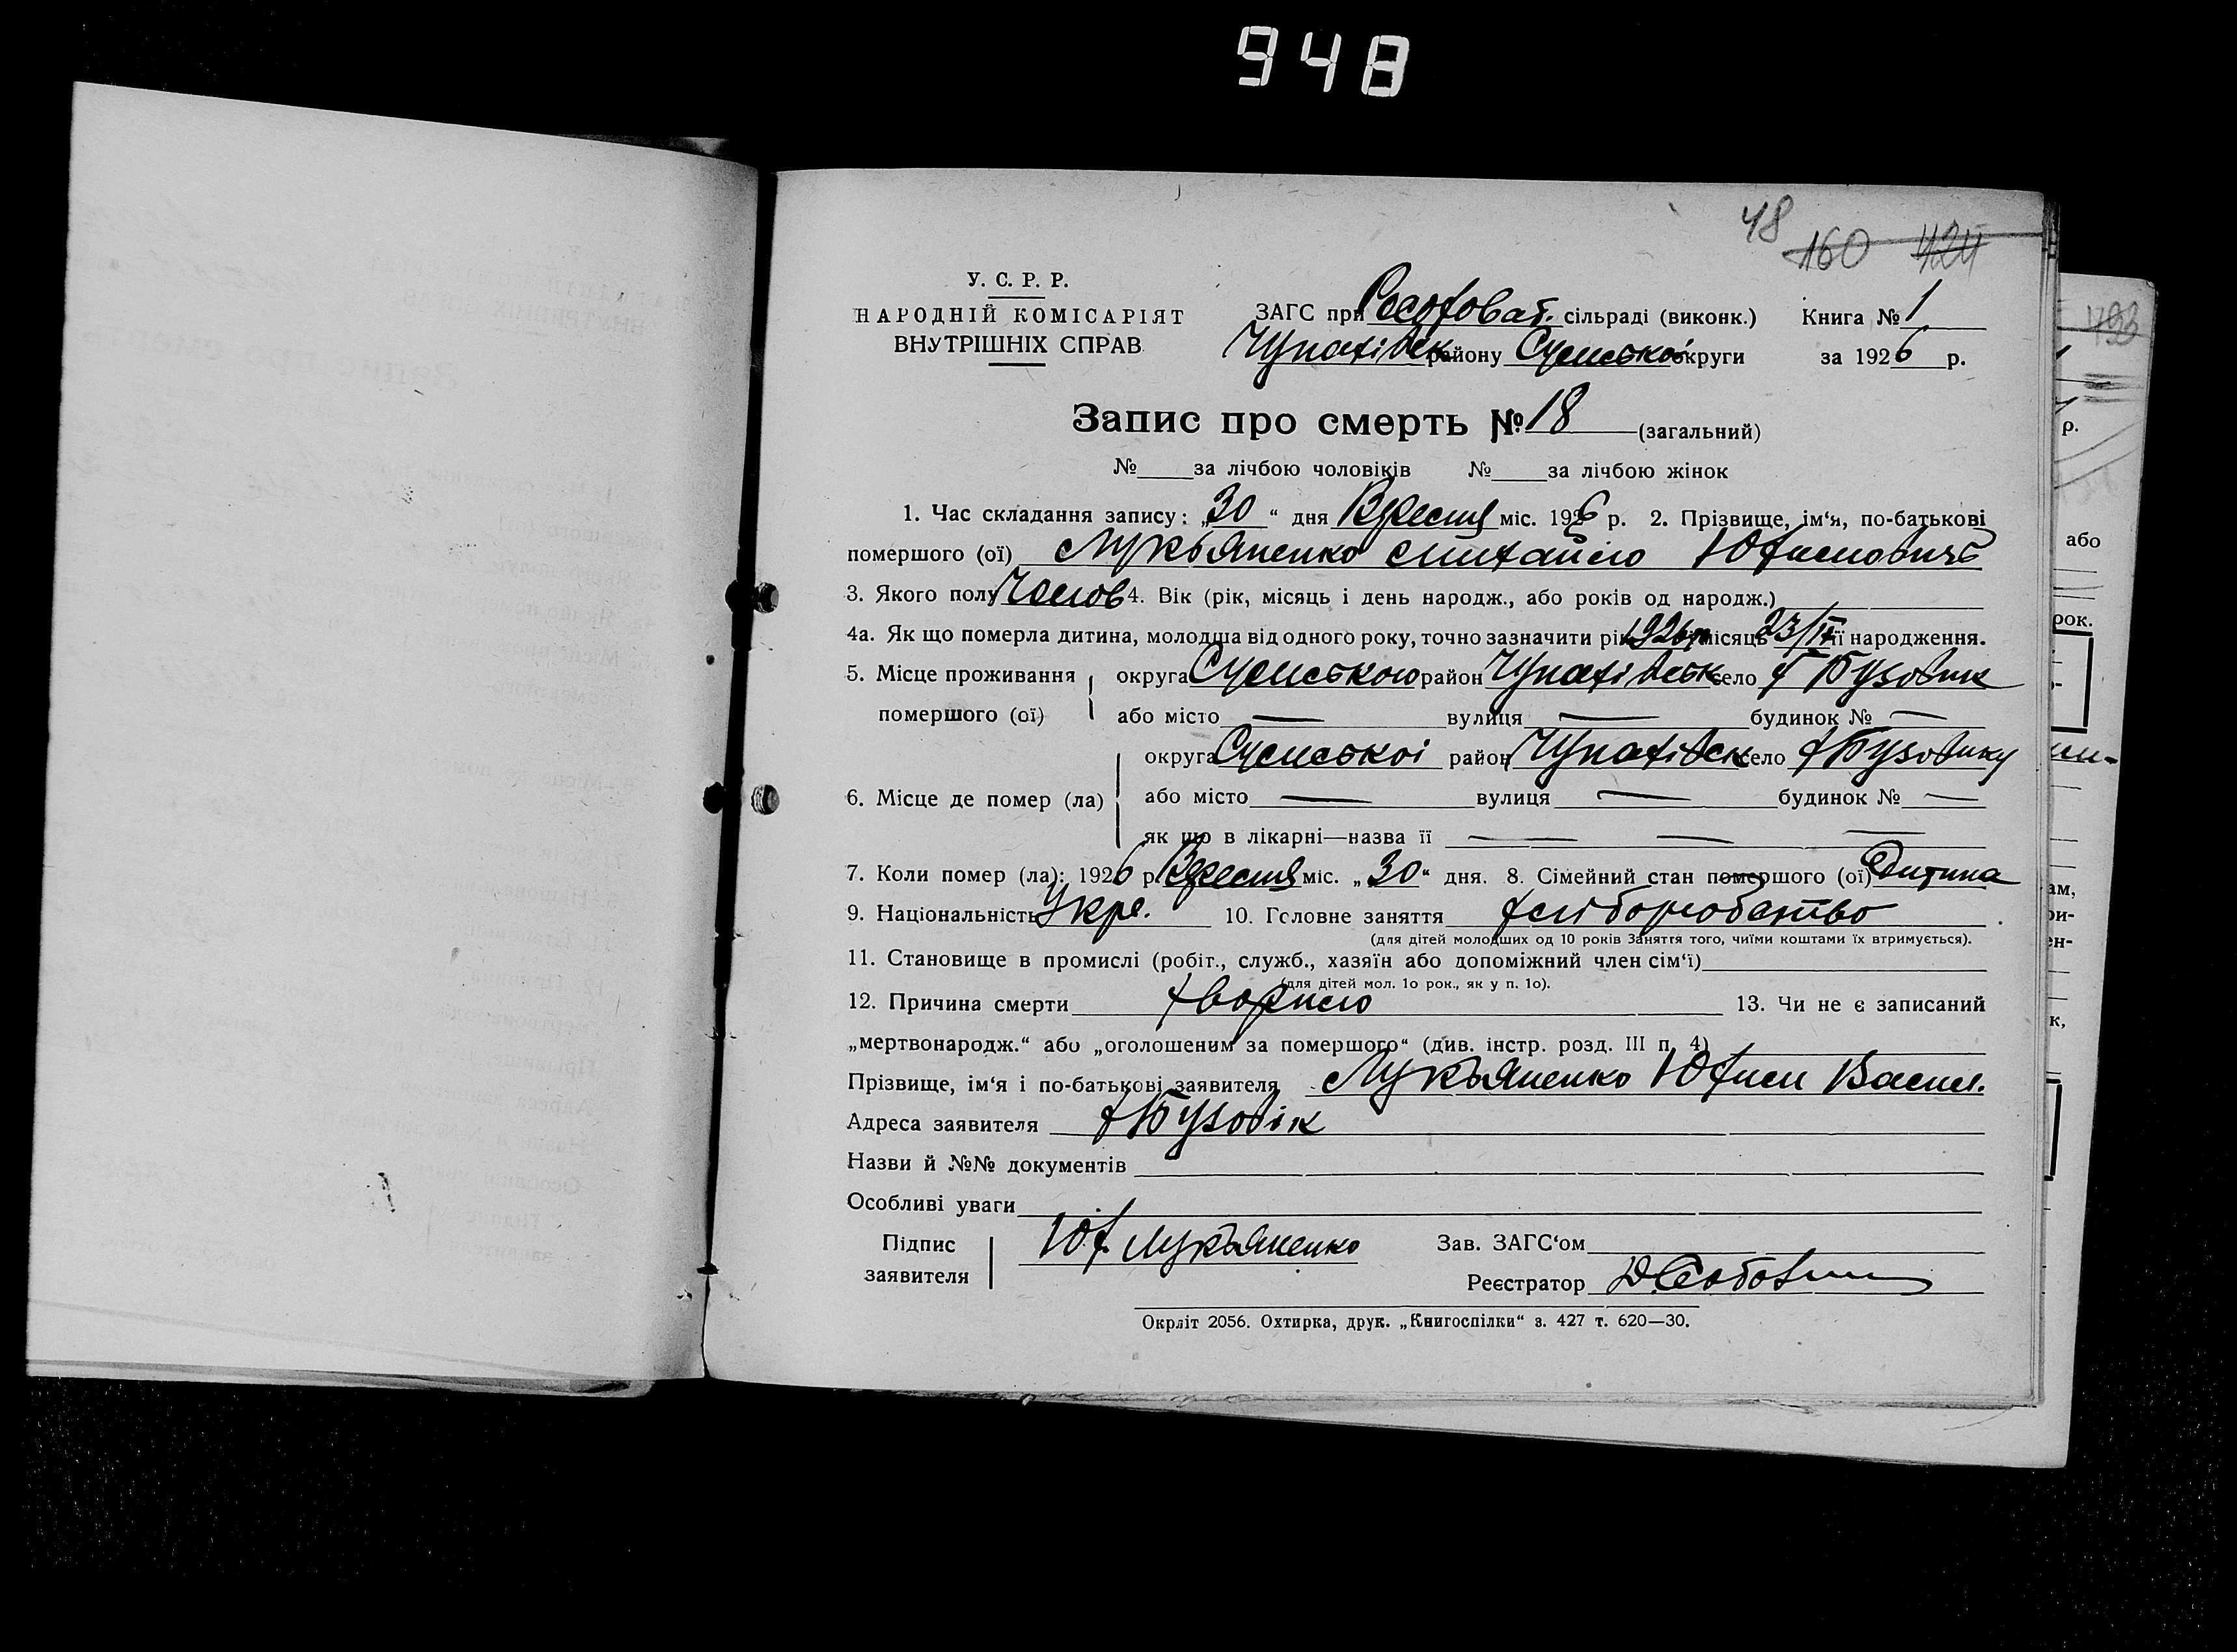 948
48 160 424
У. С. Р. Р.
НАРОДНІЙ КОМІСАРІЯТ
ВНУТРІШНІХ СПРАВ
ЗАГС при сільраді (виконк.) Книга № 1
району Сумської округи за 1926 р.
Запис про смерть № 18 (загальний)
№ за лічбою чоловіків № за лічбою жінок
1. Час складання запису: „30“ дня Вресня міс. 1926 р. 2. Прізвище, ім‘я, по-батькові
померлого (ої) Лукьяненко Михайло Юхимович
3. Якого полу Чолов 4. Вік (рік, місяць і день народж., або років од народж.)
4а. Як що померла дитина, молодша від одного року, точно зазначити рік 1926 р місяць 23/ІХ її народження.
5. Місце проживання округа Сумською район село х Бузовик
помершого (ої) або місто — вулиця — будинок № —
округа Сумської район село х Бузовику
6. Місце де помер (ла) або місто — вулиця — будинок № —
як що в лікарні—назва її — — —
7. Коли помер (ла): 1926 р. Вресня міс. „30“ дня. 8. Сімейний стан помершого (ої) Дитина
9. Національність Укра. 10. Головне заняття хліборобство
(для дітей молодших од 10 років Заняття того, чиїми коштами їх втримується).
11. Становище в промислі (робіт., служб., хазяїн або допоміжний член сім‘ї)
(для дітей мол. 1о рок., як у п. 1о).
12. Причина смерти хворило 13. Чи не є записаний
„мертвонародж.“ або „оголошеним за помершого“ (див. інстр. розд. III п. 4)
Прізвище, ім‘я і по-батькові заявителя Лукьяненко Юхим Васил.
Адреса заявителя х Бузовік
Назви й №№ документів
Особливі уваги
Підпис заявителя Юх. Лукьяненко Зав. ЗАГС‘ом
Реєстратор
Окрліт 2056. Охтирка, друк. „Книгоспілки“ з. 427 т. 620—30.